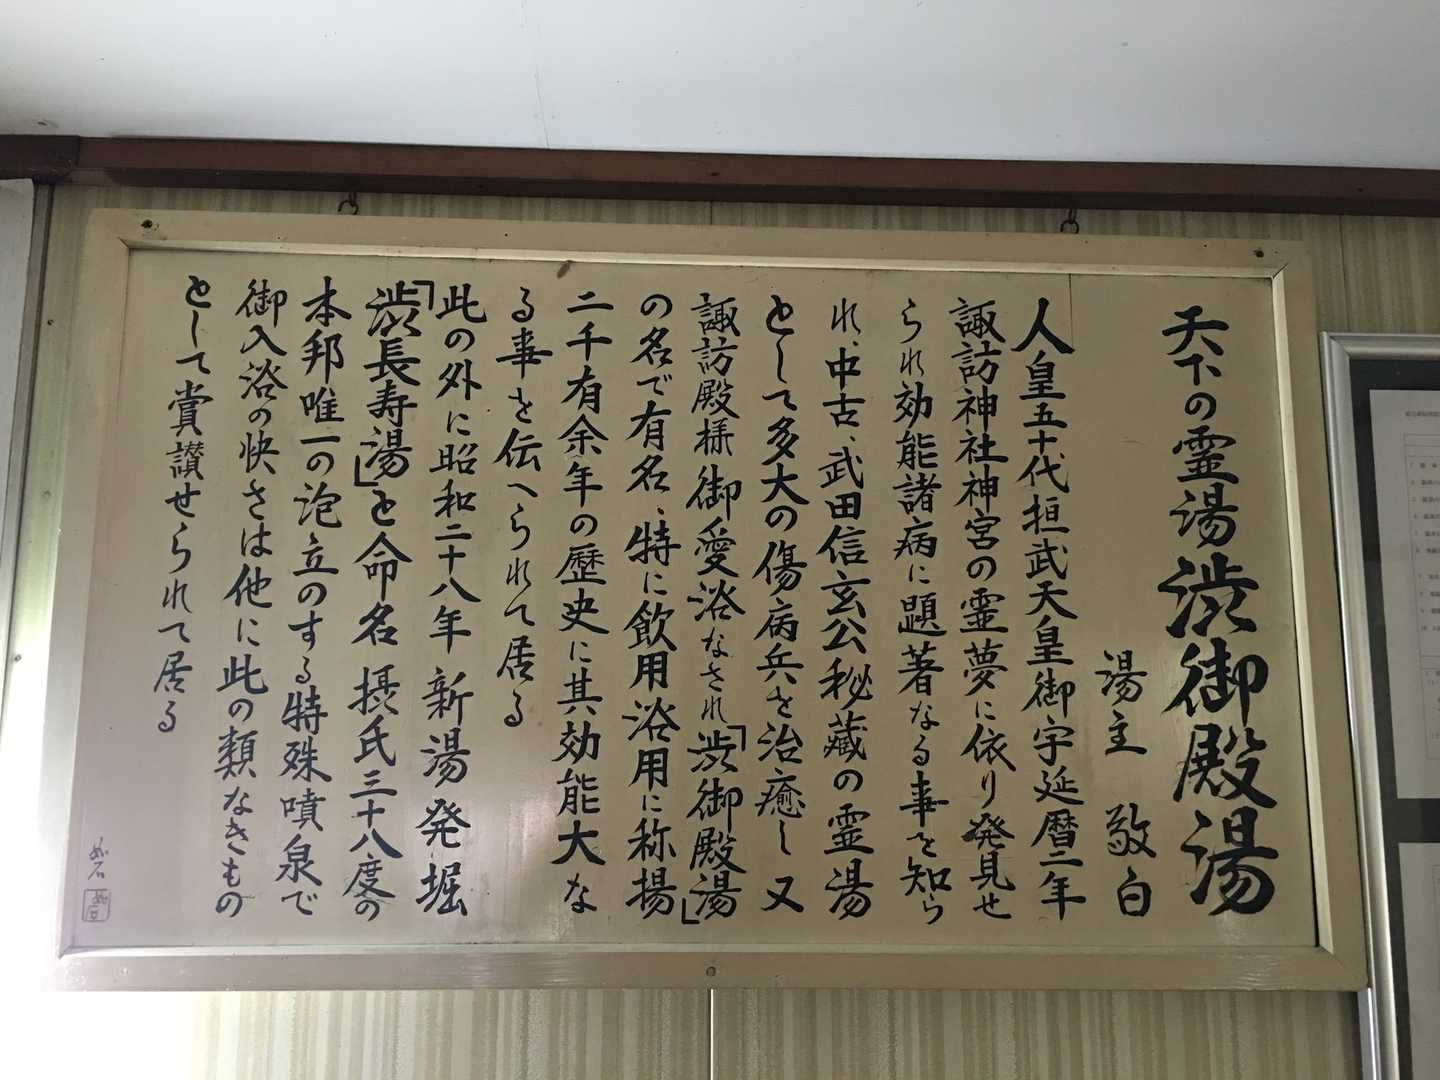 天下の霊湯渋御殿湯
湯主 敬白
人皇五十代桓武天皇御宇延暦二年
諏訪神社神宮の霊夢に依り発見せ
られ効能諸病に題著なる事を知ら
れ、中古、武田信玄公秘蔵の霊湯
として多大の傷病兵を治癒し又
諏訪殿様御愛浴なされ「渋御殿湯」
の名で有名、特に飲用浴用に称揚
二千有余年の歴史に其効能大な
る事を伝へられて居る
此の外に昭和二十八年 新湯 発掘
「渋長寿湯」と命名 摂氏三十八度の
本邦唯一の泡立のする特殊噴泉で
御入浴の快さは他に此の類なきもの
として賞讃せられて居る